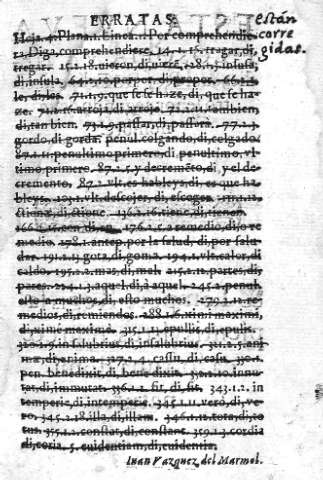 ERRATAS.
están corregidas.
Hoja.4.Plana.1.Linea.1.Por comprehendie
ra, Diga, comprehendiere. 14.1.15. tragar, di,
tregar. 15.2.18. uieron, di, uiere. 128.5. insufa,
di, insula. 64.2.10. por por, di, propor. 66.2.
le, di, los. 71.1.9. que se se haze, di, que se ha-
ze. 71.2.16. arroja, di, arrojo. 72.1.11. tambien
di, tan bien. 73.1.9. passar, di, passara. 77.2.3.
gordo, di, gorda. penul. colgando, di, colgado.
87.1.11. penultimo primero, di, penultimo, vl-
timo primero. 87.2.5. y decremeto, di, y el de-
cremento, 87.2. vlt. es hableys, di, es que ha
bleys. 103.1. vlt. descojer, di, escoger.
di, stione. 136.2.16. tiene, di, tienen
176.2.5. a remedio, di, o re
medio. 178.1. antep. por la salud, di, por salu-
dar. 191.2.13. gota, di, goma. 194.1. vlt. calor, di,
caldo. 195.2.2. mas, di, mel. 215.1.12. partes, di,
pares. 224.1.3. aquel, di, à aquel. 245.2. penul.
esto a muchos, di, esto muchos. 279.2.11. re
medios, di, remiendos. 288.1.6. ximi maximi,
di, ximè maximè. 315.1.13. epullis, di, epulis.
320.1.9. in salubrius, di, insalubrius. 321.2.5. ani
mæ, di, anima. 327.2.4. cassu, di, casu. 330.1.
pen. benedixit, di, bene dixit. immu-
tat, di, immutat. 336.1.2. fit, di, sit. 343.1.2. in
temperie, di, intemperie. 345.1.11. verò, di, ve-
ro. 345.2.18. illa, di, illam. 346.1.12. tota, di, to
tus. 355.1.2. constat, di, constans. 359.1.3. cordia
di, coria. 5. euidentiam, di, euidentia.
Iuan Vazquez del Marmol.